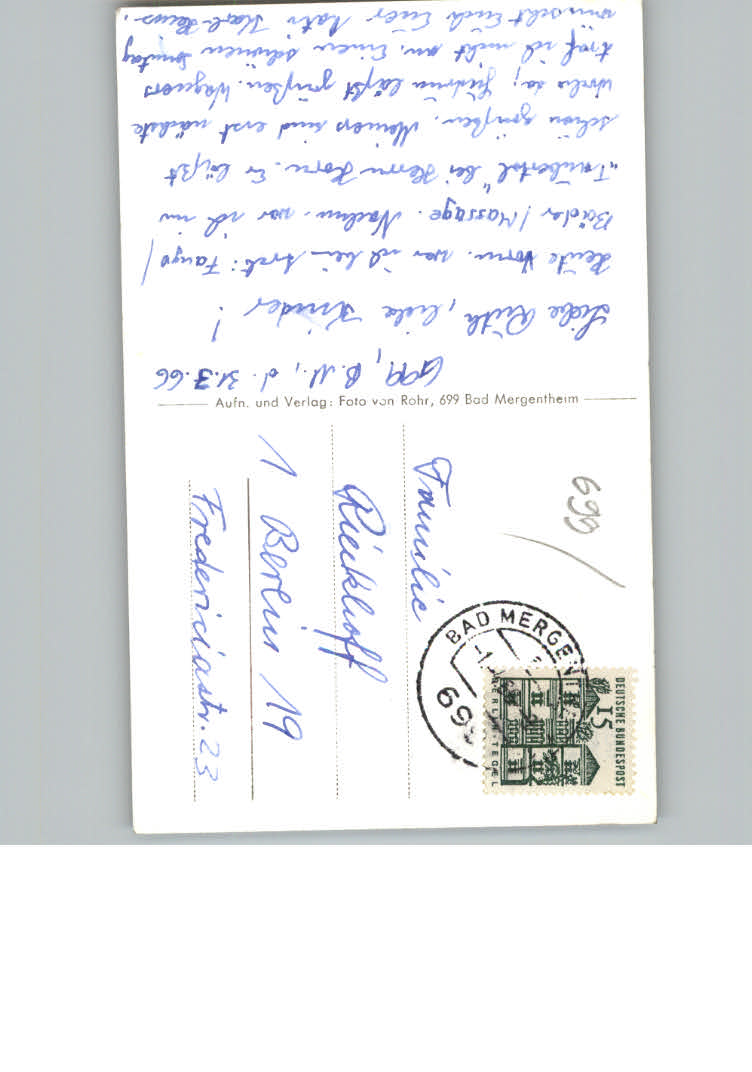 699, B.M., d. 31.3.66
Liebe Ruth, liebe Kinder!
Heute Vorm. war ich beim Arzt: Fango/
Bäder/Massage. Nachm. war ich im
"Taubertal" bei Herrn Horn. Er läßt
schön grüßen. Meiers sind erst nächste
Woche da; läßt grüßen. Wagners
traf ich nicht an. Einen schönen Sonntag
wünscht Euch Euer Vati Karl-Heinz.
Aufn. und Verlag: Foto von Rohr, 699 Bad Mergentheim
699
Familie
Rieckhoff
1 Berlin 19
Fredericiastr. 23
BAD MERGENT
699
DEUTSCHE BUNDESPOST
15
BERLIN-TEGEL